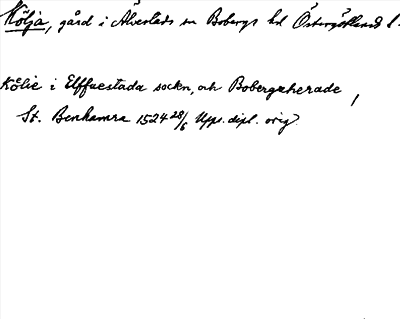 Kölja, gård i Älvestads sn Bobergs hd Östergötlands l.
Kölie i Elffuestada sockn, och Bobergxherade,
St. Benhamra 1524 28/6 Upps. dipl. orig.